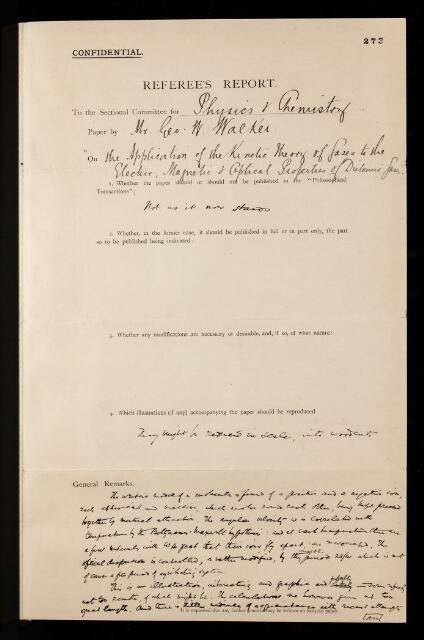 273
CONFIDENTIAL.
REFEREE'S REPORT.
To the Sectional Committee for Physics & Chemistry
Paper by Mr. Geo. W. Walker
"On the Application of the Kinetic Theory of Gases to the
Electric, Magnetic & Optical Properties of Diatomic Gases"
1. Whether the paper should or should not be published in the "Philosophical
Transactions":
Not as it now stands
2. Whether, in the former case, it should be published in full or in part only, the part
so to be published being indicated:
3. Whether any modifications are necessary or desirable, and, if so, of what nature:
4. Which illustrations (if any) accompanying the paper should be reproduced
They might be reduced in scale, into woodcuts
General Remarks.
The writer's model of a molecule is formed of a positive and a negative ion,
each spherical and massive, which revolve round each other, being kept
together by mutual attraction. The angular velocity is correlated with
temperature by the Boltzmann-Maxwell hypothesis; and at each temperature there are
a few molecules with so great that their ions fly apart,
optical dispersion is controlled, rather modified, by this period which is not
of course a free period of equilibrating system.
This is an illustration, interesting and graphic and
not too remote, of what might be. The calculations are however given at too
great length, and there is little of acquaintance with recent attempts
It is requested that any further remarks may be written on